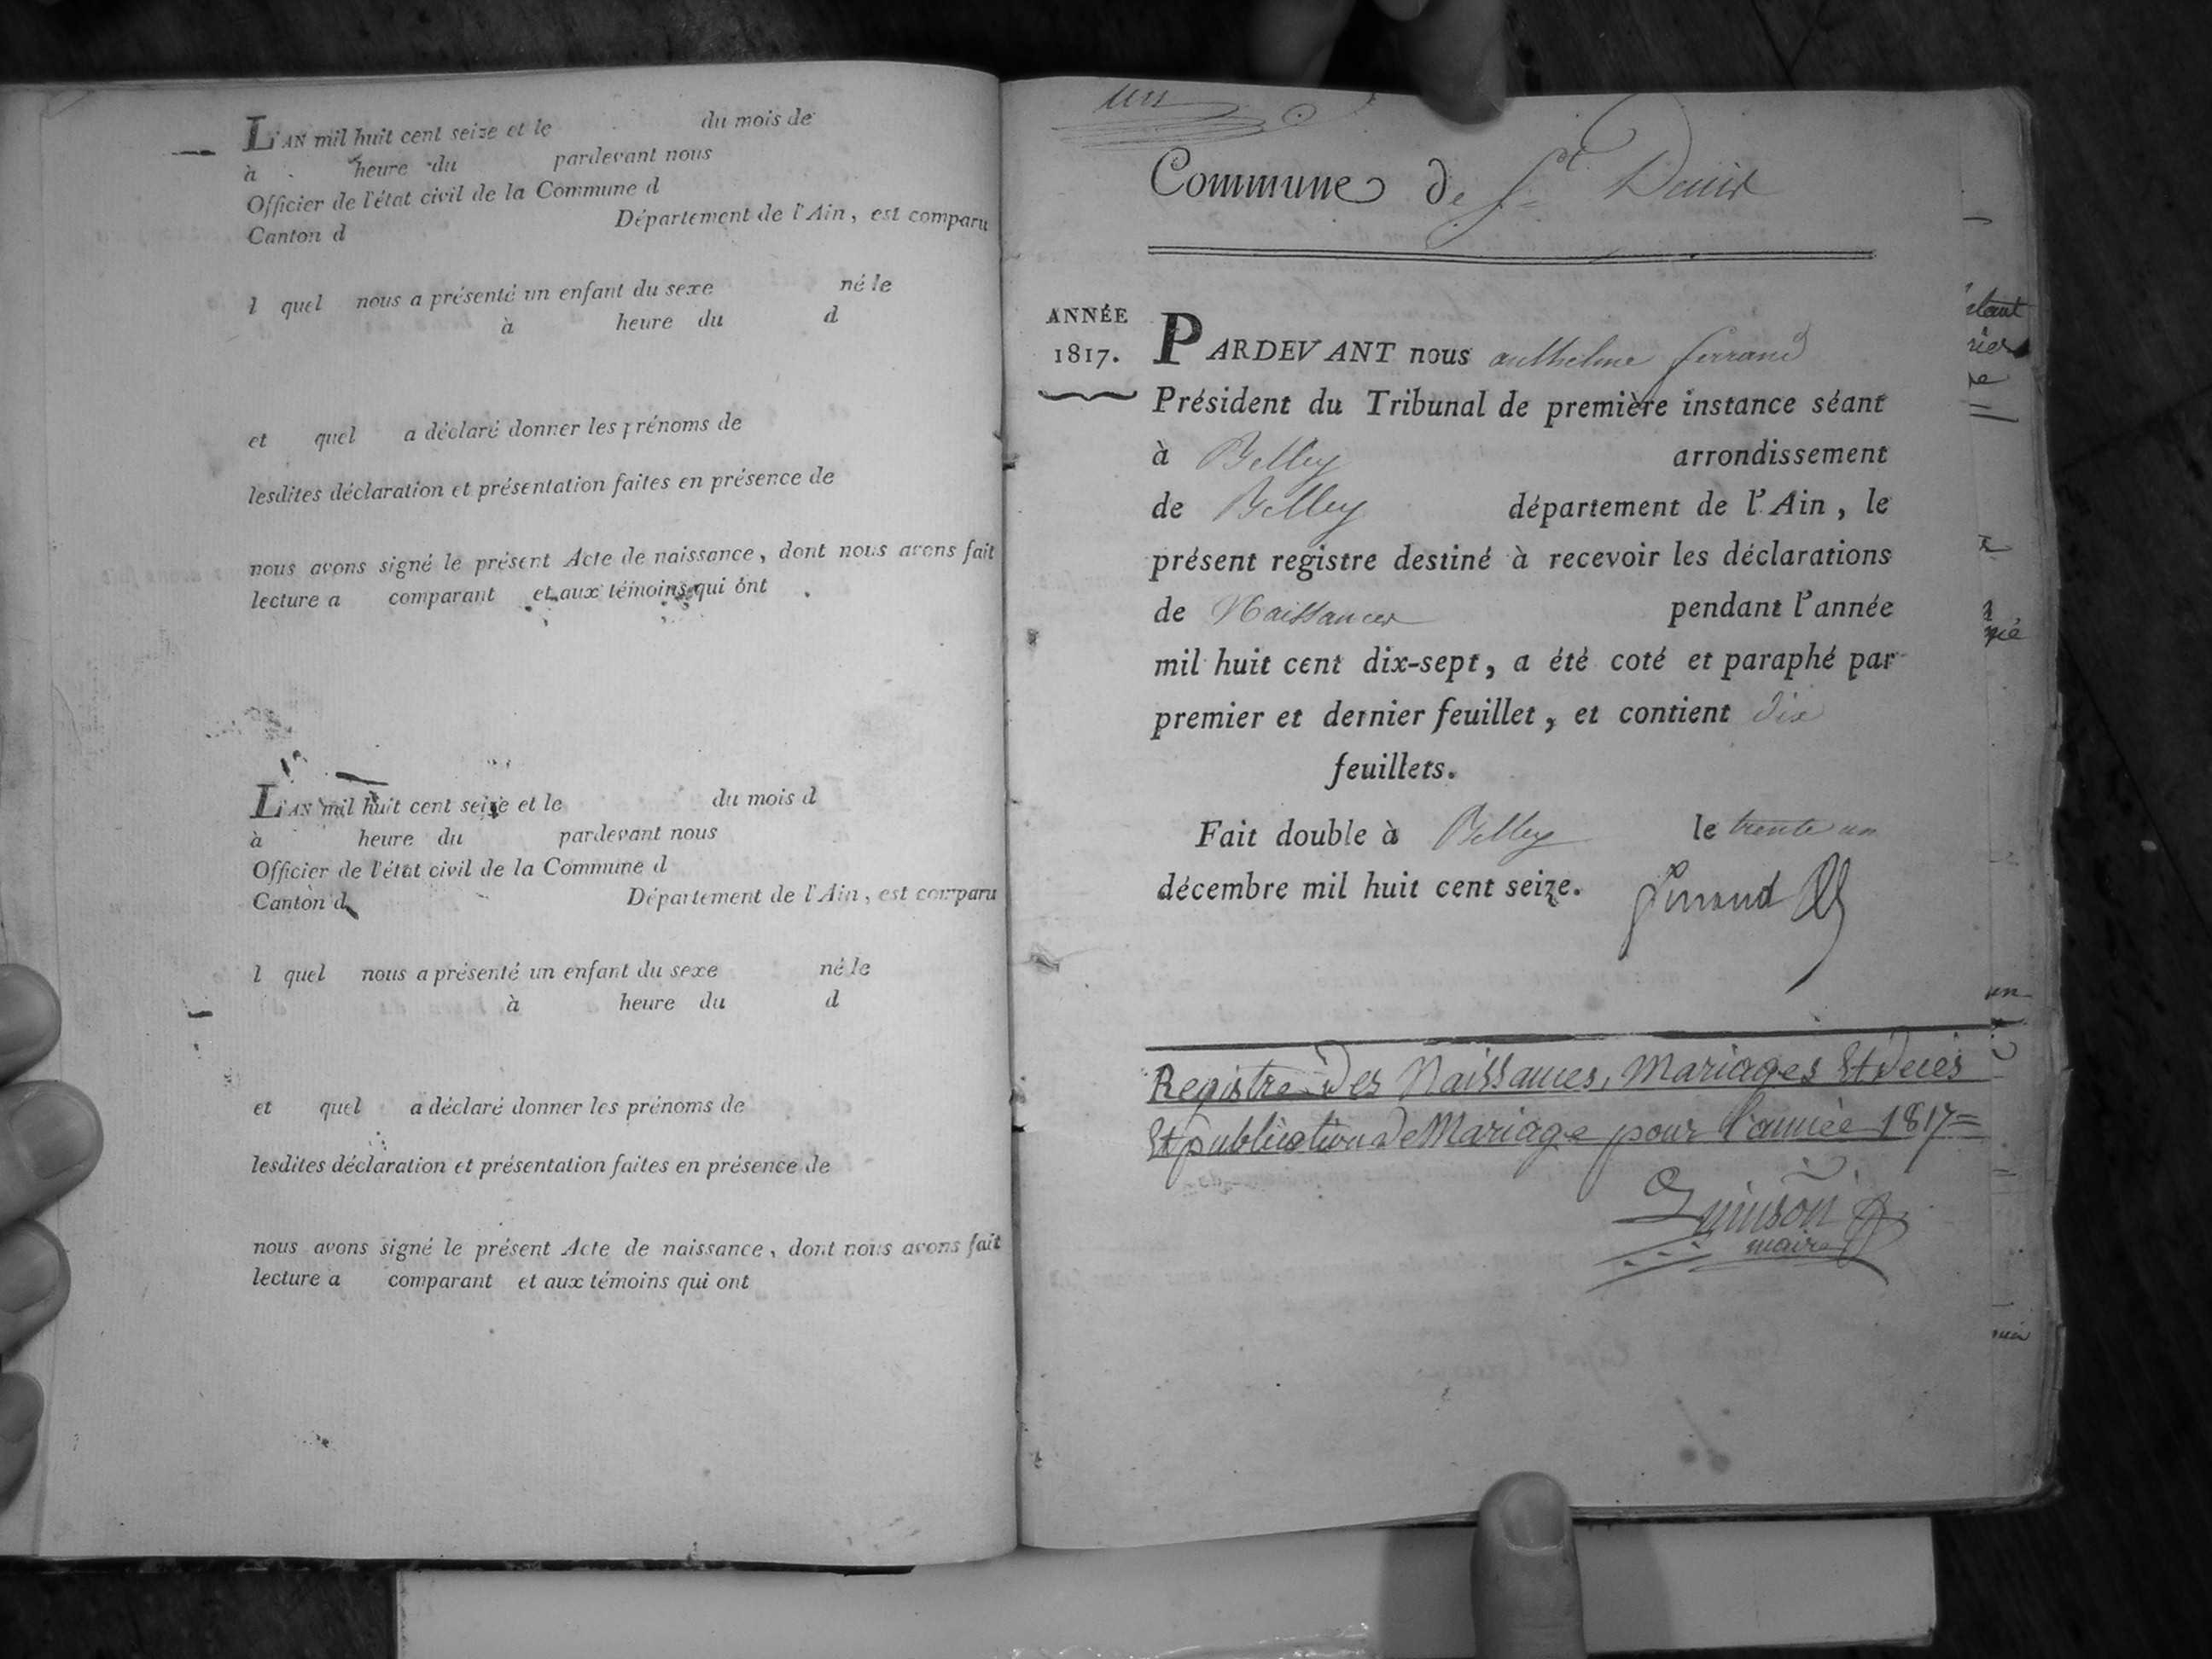 L'AN mil huit cent seize et le du mois de
à heure du pardevant nous
Officier de l'état civil de la Commune d
Canton d Département de l'Ain, est comparu
l quel nous a présenté un enfant du sexe né le
à heure du d
et quel a déclaré donner les prénoms de
lesdites déclaration et présentation faites en présence de
nous avons signé le présent Acte de naissance, dont nous avons fait
lecture a comparant et aux témoins qui ont
L'AN mil huit cent seize et le du mois d
à heure du pardevant nous
Officier de l'état civil de la Commune d
Canton d Département de l'Ain, est comparu
l quel nous a présenté un enfant du sexe né le
à heure du d
et quel a déclaré donner les prénoms de
lesdites déclaration et présentation faites en présence de
nous avons signé le présent Acte de naissance, dont nous avons fait
lecture a comparant et aux témoins qui ont
un
Commune de St Denis
ANNÉE
1817.
PARDEVANT nous anthelme ferrand
Président du Tribunal de première instance séant
à Belley arrondissement
de Belley département de l'Ain, le
présent registre destiné à recevoir les déclarations
de Naissances pendant l'année
mil huit cent dix-sept, a été coté et paraphé par
premier et dernier feuillet, et contient dix
feuillets.
Fait double à Belley le trente un
décembre mil huit cent seize. ferrand
Registre des Naissances, Mariages Et deces
Et publication de Mariage pour l'année 1817=
Quinson
maire